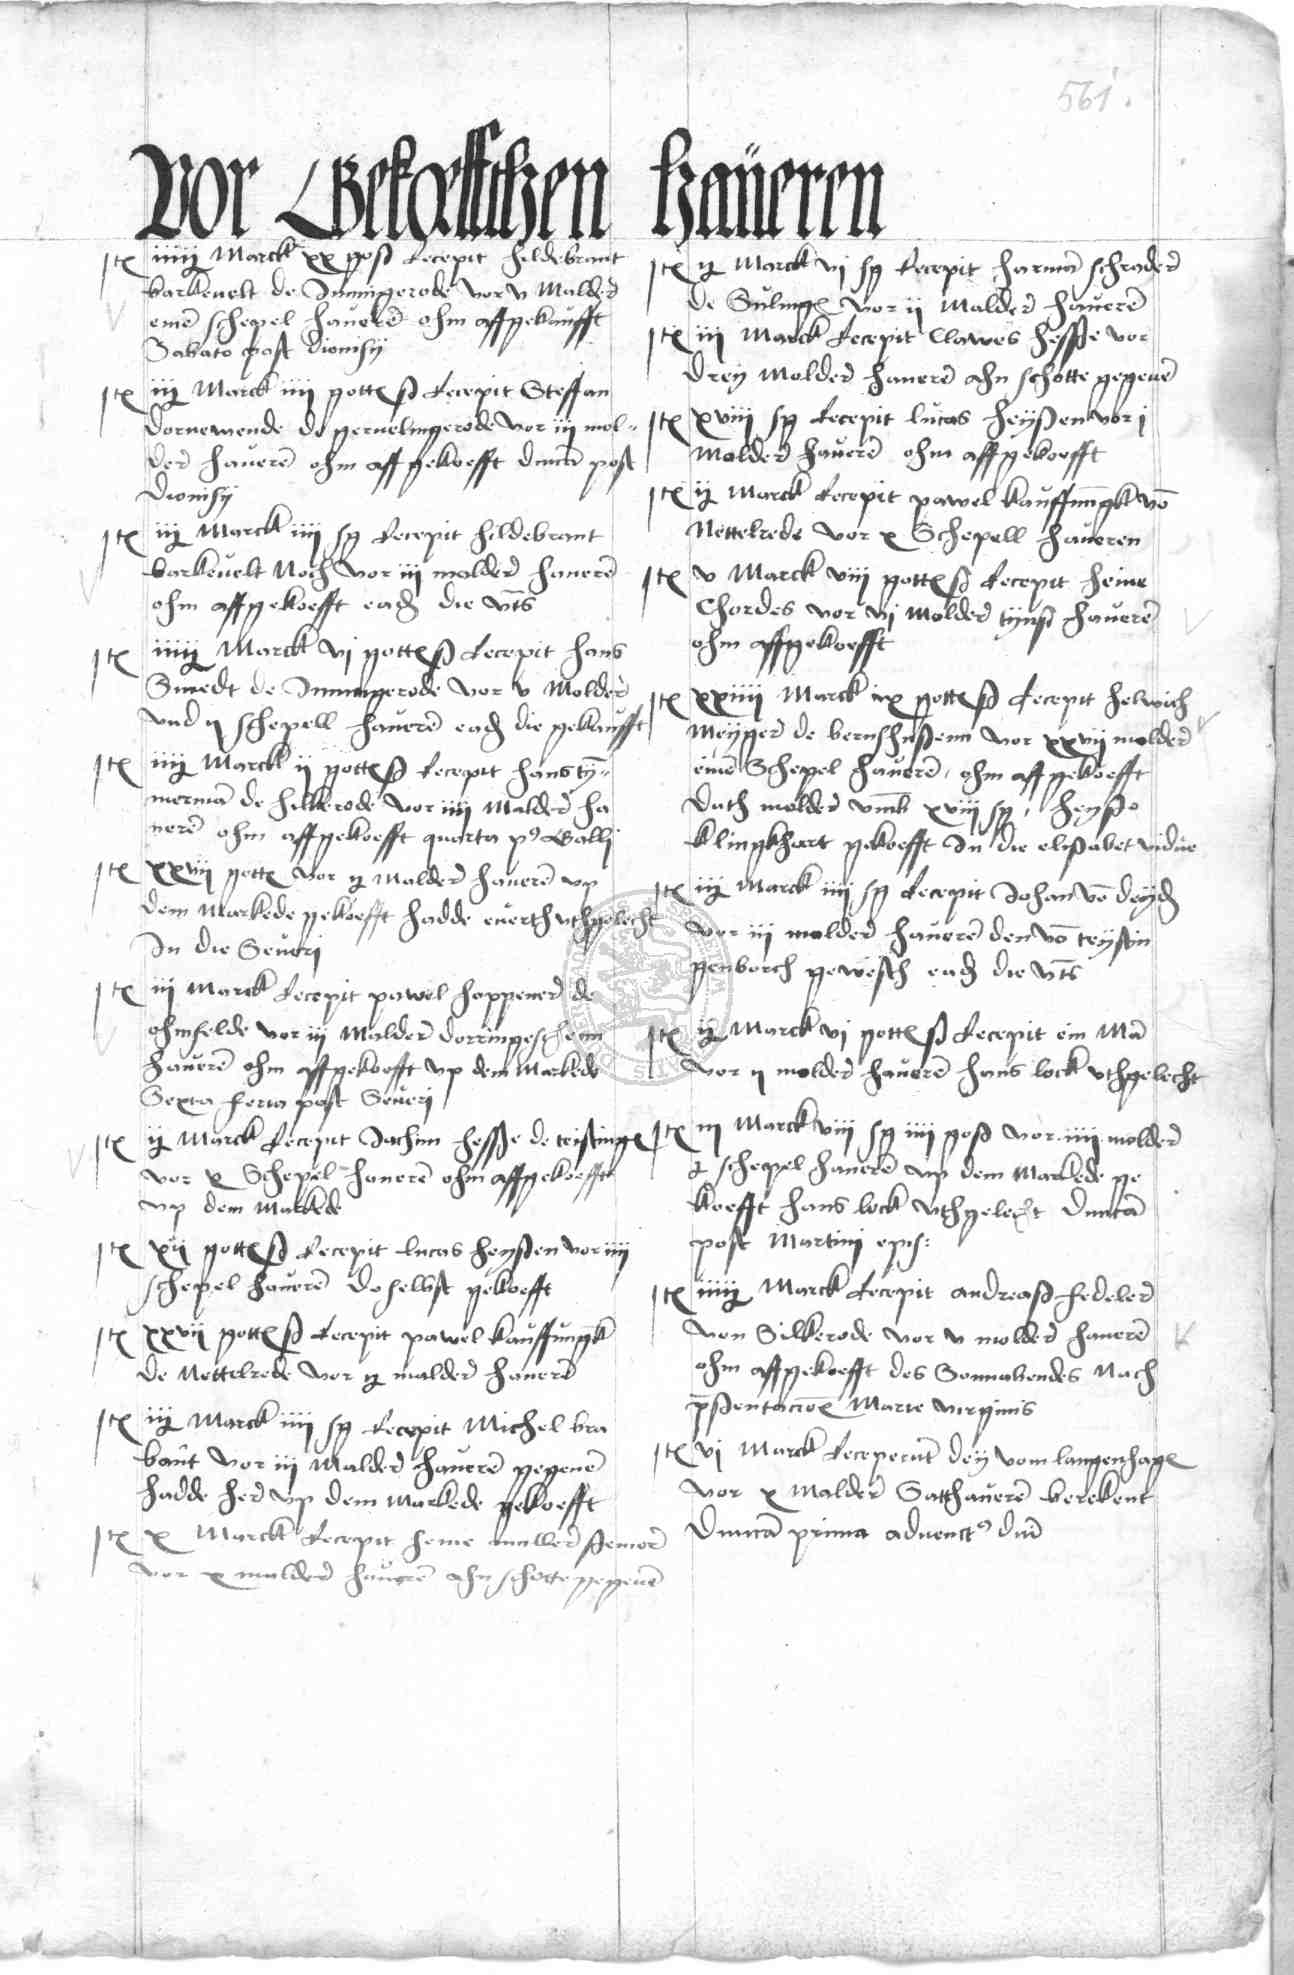 561.
Vor Gekoffthen haüeren
Itē iiiij Marck xx poß Recepit hildebrant
barkeuelt de Immigerode vor v Malder
emē schepel hauerē ohm affgekaufft
Sabato post Dionisij
Itē iij Marck iiii gotteß Recepit Steffan
Dornewende de geruelmgerode vor iij mol-
der hauerē ohm affgekoefft post
Dionisij
Itē iij Marck iiii sg Recepit hildebrant
barkeuelt Noch vor iij molder hauerē
ohm affgekoefft die vts
Itē iiiij Marck vj gotteß Recepit hans
Smedt de Immigerode vor v Molder
vnd ij schepell hauerē die gekaufft
Itē iiij Marck ij gotteß Recepit hans tȳ-
mermā de hilkerode vor iiij Malder ha
uerē ohm affgekoefft quarta p9 Galli
Itē xxvij gottē vor ij Malder hauerē vp
dem Markede gekoefft hadde euerth vthgelecht
In die Seueri
Itē iij Marck Recepit pawel hoppener de
ohmfelde vor iij Malder dorringeschenn
hauerē ohm affgekoefft vp dem Markede
Sexta feria post Seueri
Itē ij Marck Recepit Jachim hesse de teistingē
vor v Schepel hauerē ohm affgekoefft
vp dem Markede
Itē xij gotteß Recepit lucas heyßen vor iiij
schepel hauerē doselbst gekoefft
Itē xxvij gotteß Recepit pawel kauffungk
de Nettelrede vor ij malder hauerē
Itē iij Marck iiii sg Recepit Michel bra
bant vor iij Malder hauerē gegeuē
hadde her vp dem Markede gekoefft
Itē x Marck Recepit heine muller
vor x malder hauerē ahn schotte gegeuē
Itē ij Marck vj sg Recepit harmā schrader
de Sulingē vor ij Malder hauerē
Itē iij Marck Recepit Clawes hesße vor
Drey Molder hauerē ahn schotte gegeuē
Itē xviij sg Recepit lucas heyßen vor j
Molder hauerē ohm affgekoefft
Itē ij Marck Recepit pawel kauffungk vō
Nettelrede vor x Schepell haueren
Itē v Marck viij gotteß Recepit heine
Chordes vor vj Molder tynß hauerē
ohm affgekoefft
Itē xxiiij Marck ix gotteß Recepit helwich
Meyger de bernshußenn vor xxvij molder
emē Schepel hauerē ohm affgekoefft
Dath molder vmb xviij sg heyße
klingkhart gekoefft In die elisabet vidue
Itē iij Marck iiij sg Recepit Johan vō
vor iij molder hauerē den vō teystin
genborch gewesth die vts
Itē ij Marck vj gotteß Recepit ein Mā
vor ij molder hauerē hans lock vthgelecht
Itē iij Marck viij sg iiij poß vor iiij molder
ij schepel hauerē vp dem Markede ge
koefft hans lock vthgelecht
post Martini epis:
Itē iiiij Marck Recepit andreaß fedeler
von Silkerode vor v molder hauerē
ohm affgekoefft des Sonnabendes Nach
Marie virginis
Itē vj Marck Receperūt dey vom langenhagē
vor x Malder Satthauerē berekent
prima aduent9 dni